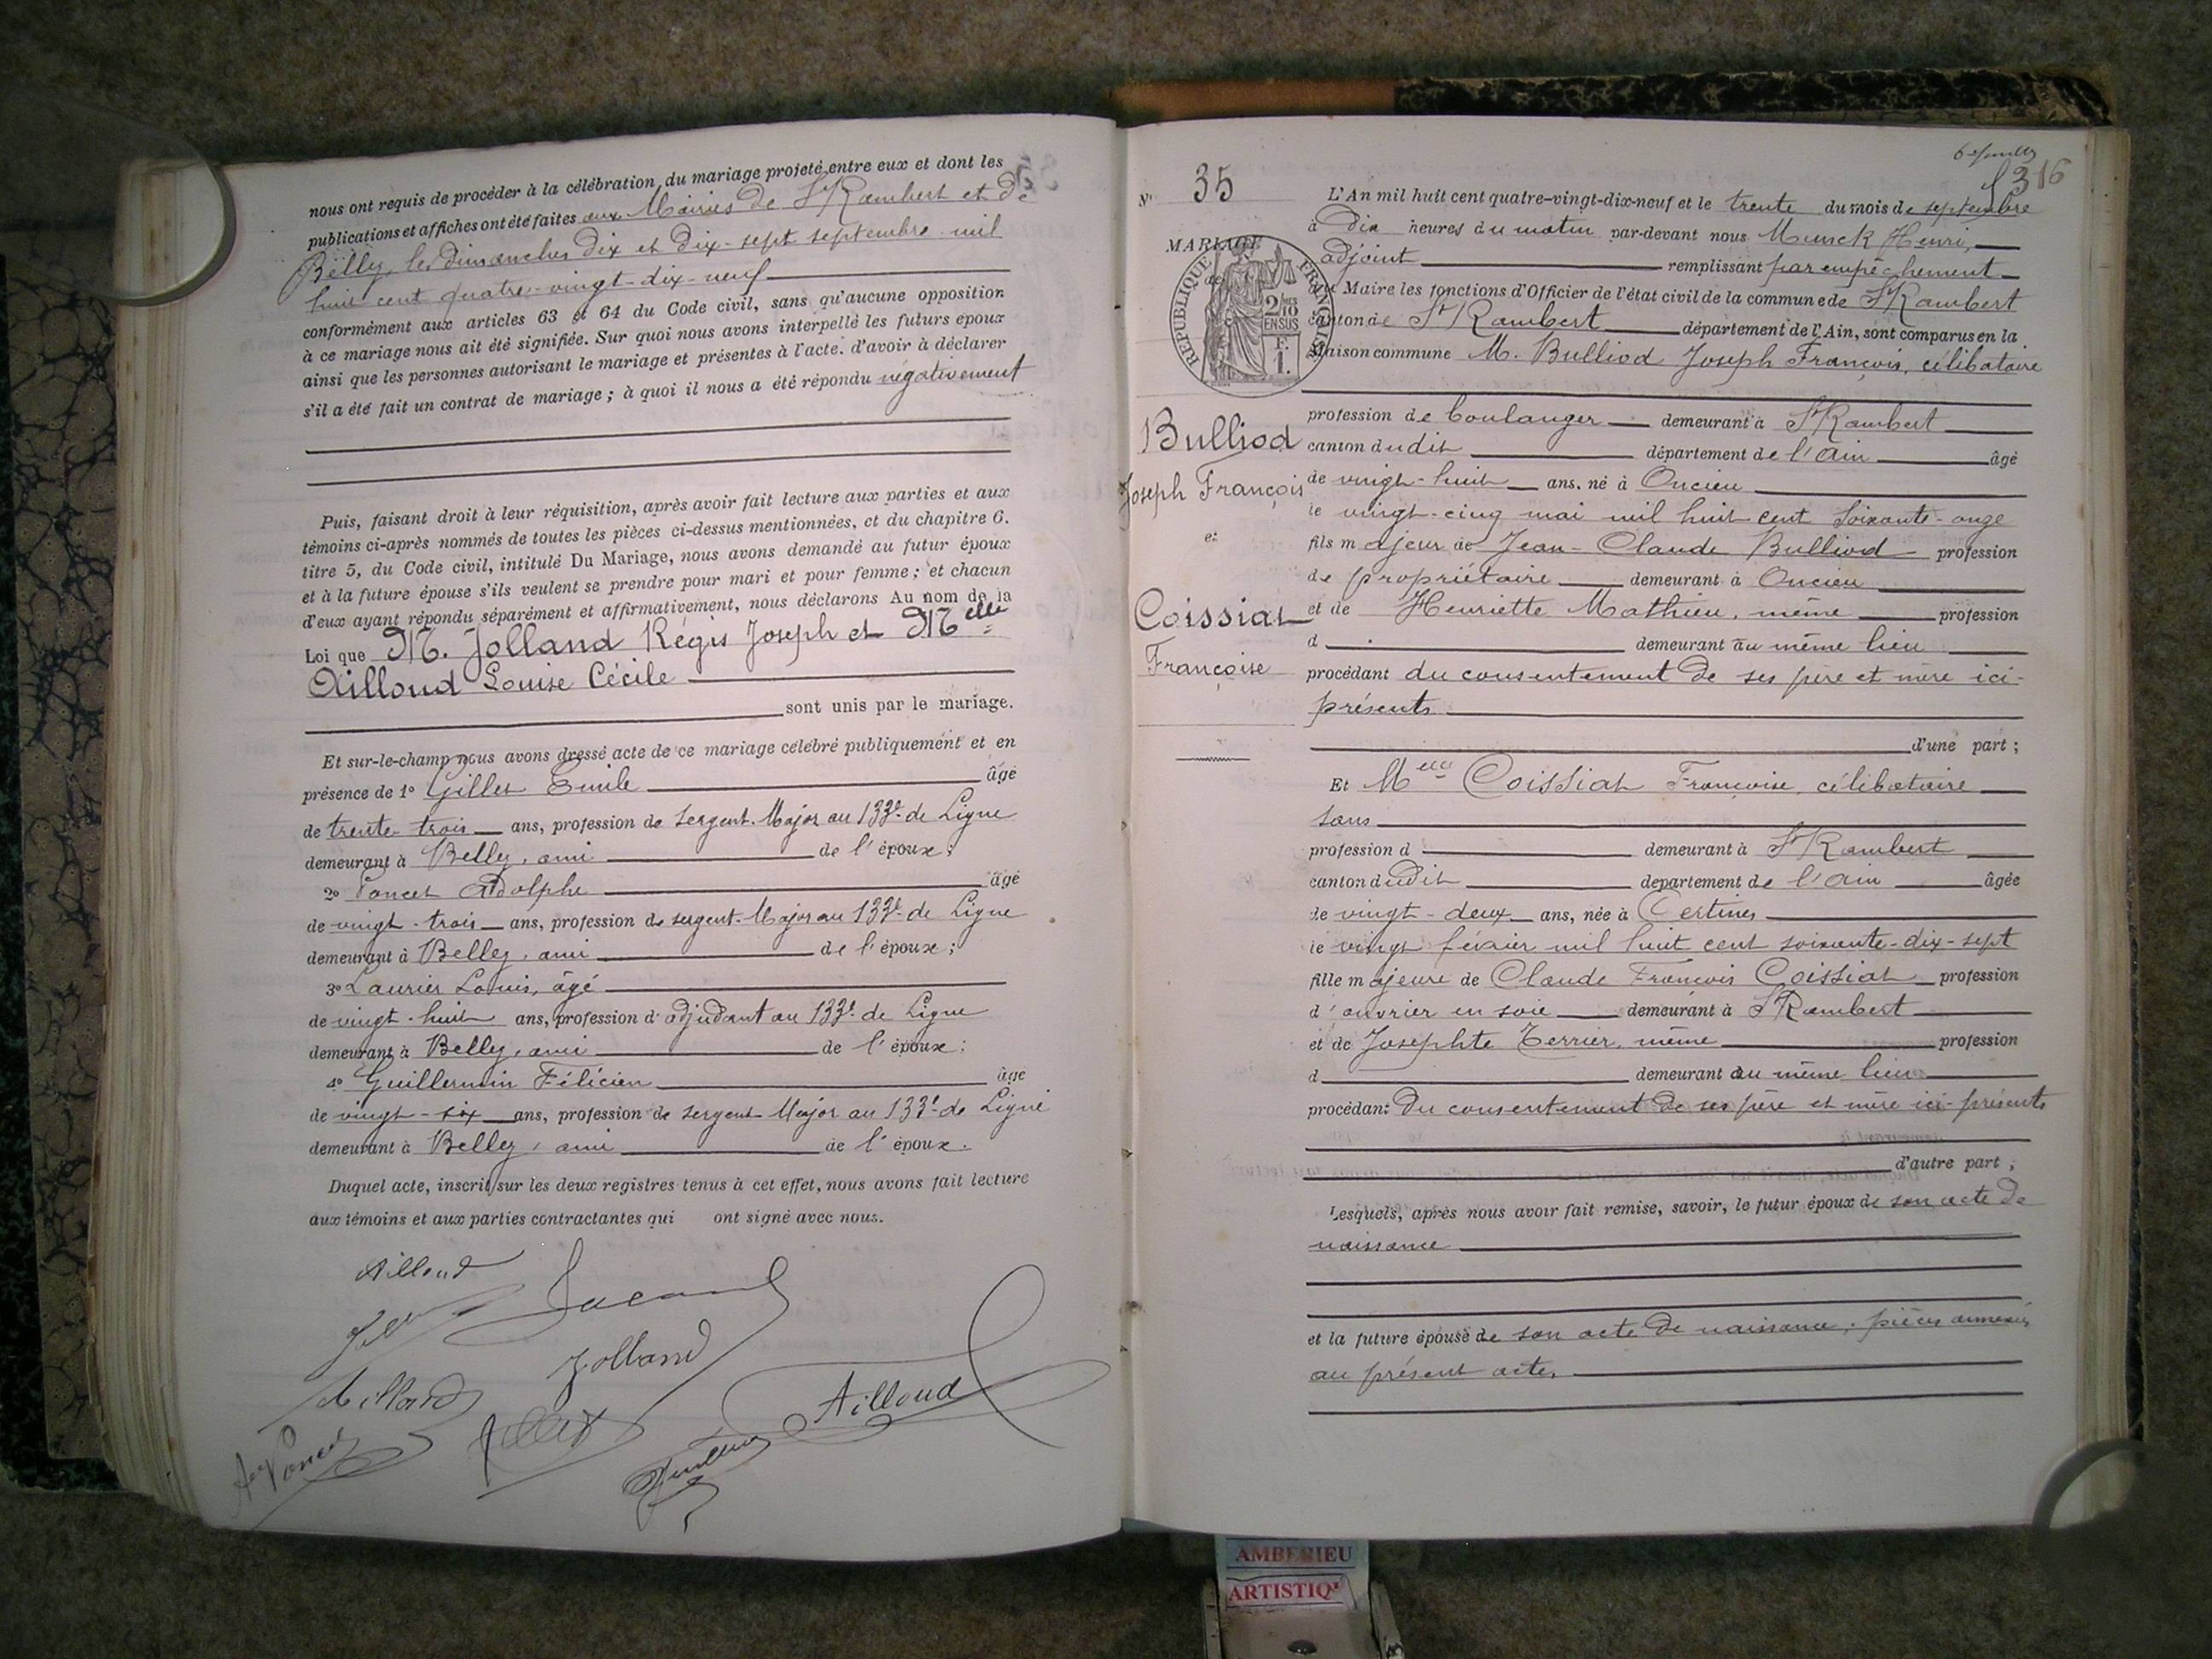 nous ont requis de procéder à la célébration du mariage projeté entre eux et dont les
publications et affiches ont été faites aux Mairies de St Rambert et de
Belley, les dimanches dix et dix-sept septembre mil
huit cent quatre-vingt-dix-neuf
conformément aux articles 63 et 64 du Code civil, sans qu'aucune opposition
à ce mariage nous ait été signifiée. Sur quoi nous avons interpellé les futurs époux
ainsi que les personnes autorisant le mariage et présentes à l'acte. d'avoir à déclarer
s'il a été fait un contrat de mariage ; à quoi il nous a été répondu négativement
Puis, faisant droit à leur réquisition, après avoir fait lecture aux parties et aux
témoins ci-après nommés de toutes les pièces ci-dessus mentionnées, et du chapitre 6.
titre 5, du Code civil, intitulé Du Mariage, nous avons demandé au futur époux
et à la future épouse s'ils veulent se prendre pour mari et pour femme ; et chacun
d'eux ayant répondu séparément et affirmativement, nous déclarons Au nom de la
Loi que M. Jolland Régis Joseph et Melle
Ailloud Louise Cécile
sont unis par le mariage.
Et sur-le-champ nous avons dressé acte de ce mariage célébré publiquement et en
présence de 1° Gillet Emile âgé
de trente-trois ans, profession de sergent-Major au 133e de Ligne
demeurant à Belley, ami de l'époux ;
2° Poncet Adolphe âgé
de vingt-trois ans, profession de sergent-Major au 133e de Ligne
demeurant à Belley, ami de l'époux ;
3° Laurier Louis, âgé
de vingt-huit ans, profession d'adjudant au 133e de Ligne
demeurant à Belley, ami de l'époux ;
4° Guillermin Félicien âgé
de vingt-six ans, profession de sergent Major au 133e de Ligne
demeurant à Belley, ami de l'époux.
Duquel acte, inscrit sur les deux registres tenus à cet effet, nous avons fait lecture
aux témoins et aux parties contractantes qui ont signé avec nous.
Ailloud
Jolland
Ailloud
A. Poncet
N° 35
316
MARIAGE
de
RÉPUBLIQUE FRANÇAISE
2/10 EN SUS
1 F.
L'An mil huit cent quatre-vingt-dix-neuf et le trente du mois de septembre
à Dix heures du matin par-devant nous Munck Henri,
adjoint remplissant par empêchement
du Maire les fonctions d'Officier de l'état civil de la commune de St Rambert
canton de St Rambert département de l'Ain, sont comparus en la
Maison commune M. Bulliod Joseph François, célibataire
Bulliod
Joseph François
et
Coissiat
Françoise
profession de boulanger demeurant à St Rambert
canton dudit département de l'Ain âgé
de vingt-huit ans, né à Oncieu
le vingt-cinq mai mil huit cent soixante-onze
fils majeur de Jean-Claude Bulliod profession
de propriétaire demeurant à Oncieu
et de Henriette Mathieu, même profession
d demeurant au même lieu
procédant du consentement de ses père et mère ici-
présents
d'une part ;
Et Melle Coissiat Françoise, célibataire
sans
profession d demeurant à St Rambert
canton dudit département de l'Ain âgée
de vingt-deux ans, née à Certines
le vingt février mil huit cent soixante-dix-sept
fille majeure de Claude François Coissiat profession
d'ouvrier en soie demeurant à St Rambert
et de Josephte Terrier, même profession
d demeurant au même lieu
procédant du consentement de ses père et mère ici-présents
d'autre part ;
Lesquels, après nous avoir fait remise, savoir, le futur époux de son acte de
naissance
et la future épouse de son acte de naissance, pièces annexées
au présent acte,
AMBERIEU
ARTISTIQ